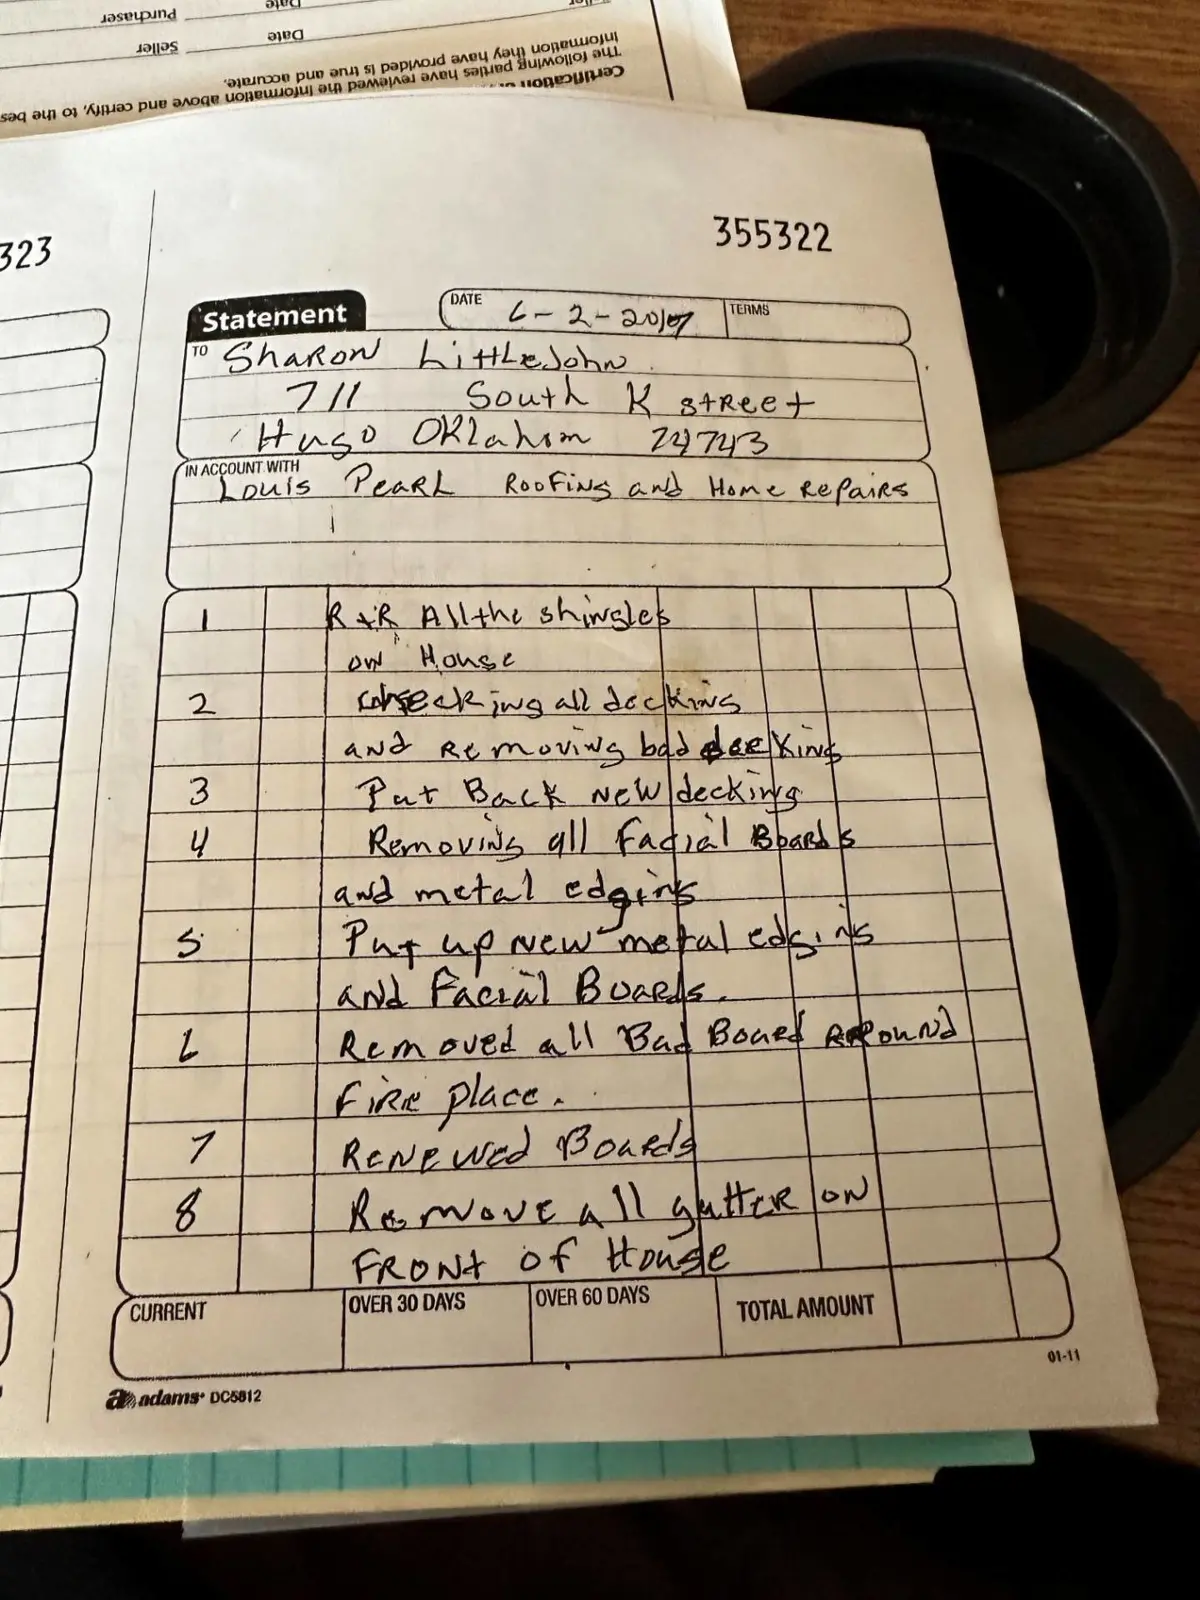 Purchaser
Date
Seller
Date
information they have provided is true and accurate.
The following parties have reviewed the information above and certify, to the bes
Certification
323
355322
Statement
DATE 6-2-2017
TERMS
TO Sharon LittleJohn
711 South K street
Hugo Oklahom 74743
IN ACCOUNT WITH
Louis Pearl Roofing and Home Repairs
1 R+R All the shingles
on House
2 checking all decking
and removing bad decking
3 Put Back new decking
4 Removing all Facial Boards
and metal edging
5 Put up new metal edging
and Facial Boards.
6 Removed all Bad Board around
fire place.
7 Renewed Boards
8 Remove all gutter on
FRONt of House
CURRENT
OVER 30 DAYS
OVER 60 DAYS
TOTAL AMOUNT
01-11
adams DC5812